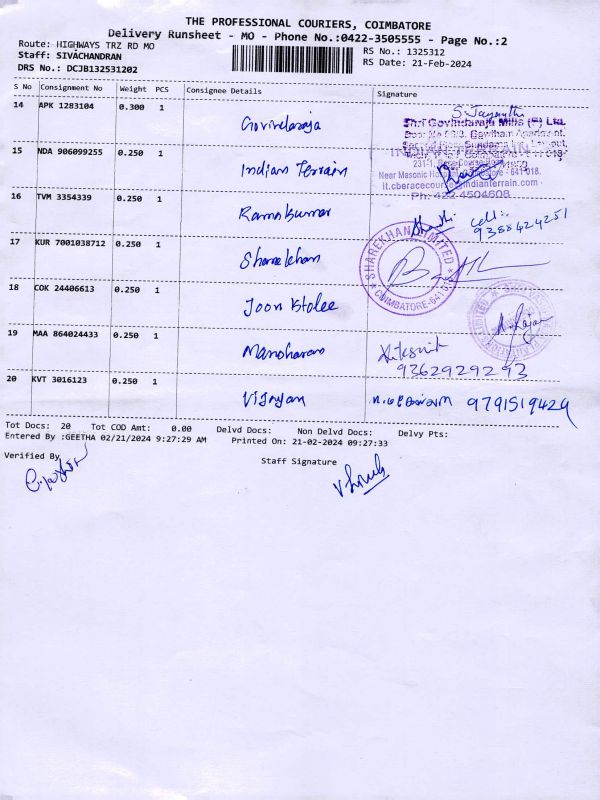 THE PROFESSIONAL COURIERS, COIMBATORE
Delivery Runsheet - MO - Phone No.:0422-3505555 - Page No.:2
Route: HIGHWAYS TRZ RD MO
RS No.: 1325312
Staff: SIVACHANDRAN
RS Date: 21-Feb-2024
DRS No.: DCJB132531202
S No Consignment No Weight PCS Consignee Details Signature
14 APK 1283104 0.300 1 Govindaraja S Jayanthi
Shri Govindaraju Mills (P) Ltd.
15 NDA 906099255 0.250 1 Indian Terrain
231-1, Race Course Road
Near Masonic Coimbatore - 641 018.
it.cberacecourse@indianterrain.com
Ph: 422-4504608
16 TVM 3354339 0.250 1 Ramkumar Shanthi cell:-
9388424251
17 KUR 7001038712 0.250 1 Sharekhan
SHAREKHAN LIMITED
COIMBATORE-641
18 COK 24406613 0.250 1
LIMITED
19 MAA 864024433 0.250 1 Manoharan
9362929293
20 KVT 3016123 0.250 1 Vijayan 9791519429
Tot Docs: 20 Tot COD Amt: 0.00 Delvd Docs: Non Delvd Docs: Delvy Pts:
Entered By :GEETHA 02/21/2024 9:27:29 AM Printed On: 21-02-2024 09:27:33
Verified By
Staff Signature